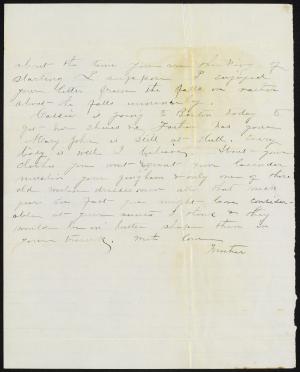 about the time you are thinking of
starting I suppose. I enjoyed
your letter from the falls or rather
about the falls immensely.
Cassie is going to Boston today to
get her shoes so Father has gone
Mary John is still at Hull. Every
body is well I believe. About your
clothes you wont want your
your gingham & only one of those
old worsted dresses now all that
you in fact you might leave consider-
able at your aunts I think & they
would be in better shape than in
your trunk. With love
Mother